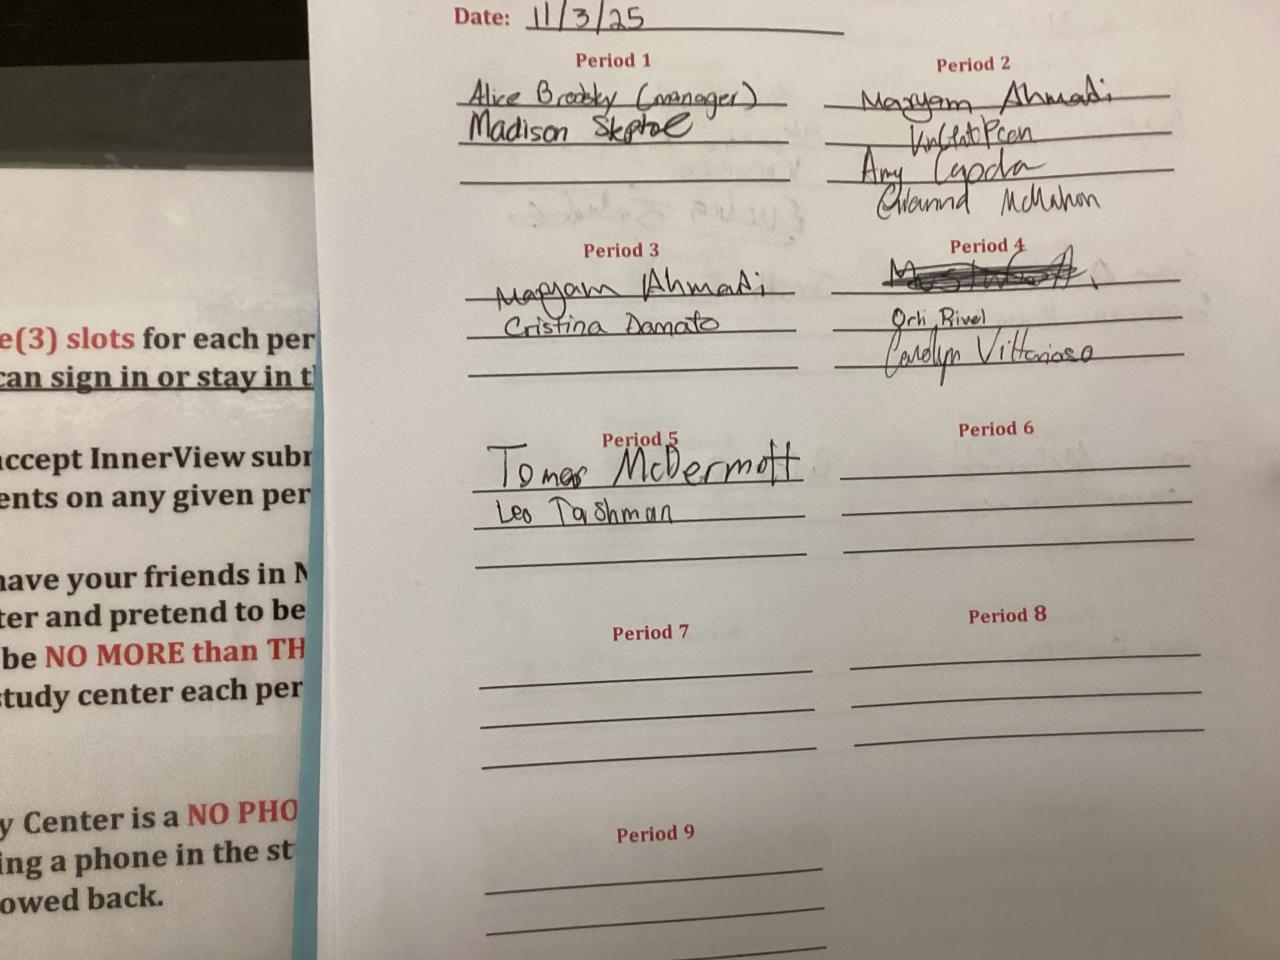 Date: 11/3/25
Period 1
Alice Brodsky (manager)
Madison
Period 2
Maryam Ahmadi
Amy
McMahon
Period 3
Maryam Ahmadi
Cristina Damato
Period 4
Orli Rivel
Carolyn Vittorioso
Period 5
Tomer McDermott
Leo Tashman
Period 6
Period 7
Period 8
Period 9
e(3) slots for each per
can sign in or stay in t
accept InnerView subr
ents on any given per
have your friends in N
ter and pretend to be
be NO MORE than TH
study center each per
y Center is a NO PHO
ing a phone in the st
owed back.